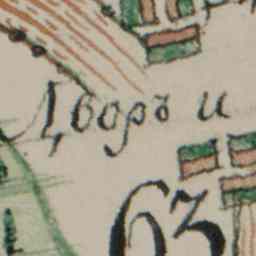 Дворъ и
63